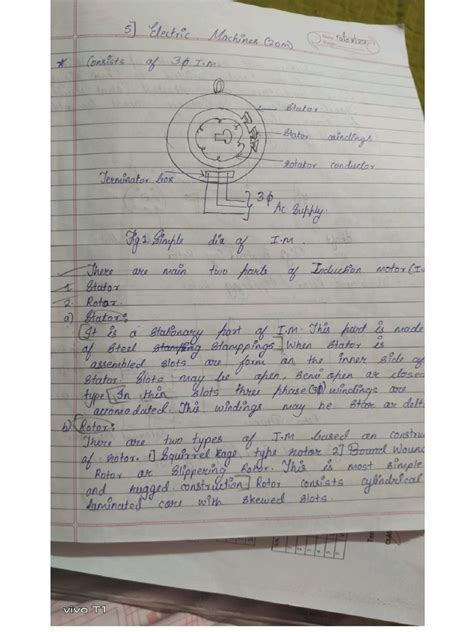 5] Electric Machines (20M)
* Consists of 3φ I.M.
Stator
Stator windings
Rotator conductor
Terminator box
3φ
Ac Supply.
Fig 1. Simple dia of I.M.
There are main two parts of Induction motor (I.
1. Stator
2. Rotor.
a) Stator:
[It is a stationary part of I.M. This part is made
of Steel Stamppings] When Stator is
assembled slots are form on the inner side of
Stator. Slots may be open, Semi open or closed
type [In this slots three phase (3φ) windings are
accomodated. This windings may be Star or delta
b) Rotor:
There are two types of I.M based on constru
of rotor. 1] Squirrel Cage type rotor 2] Wound
Rotor or Slippering Rotor. [This is most simple
and rugged construction] Rotor consists cylindrical
laminated core with skewed slots.
vivo T1